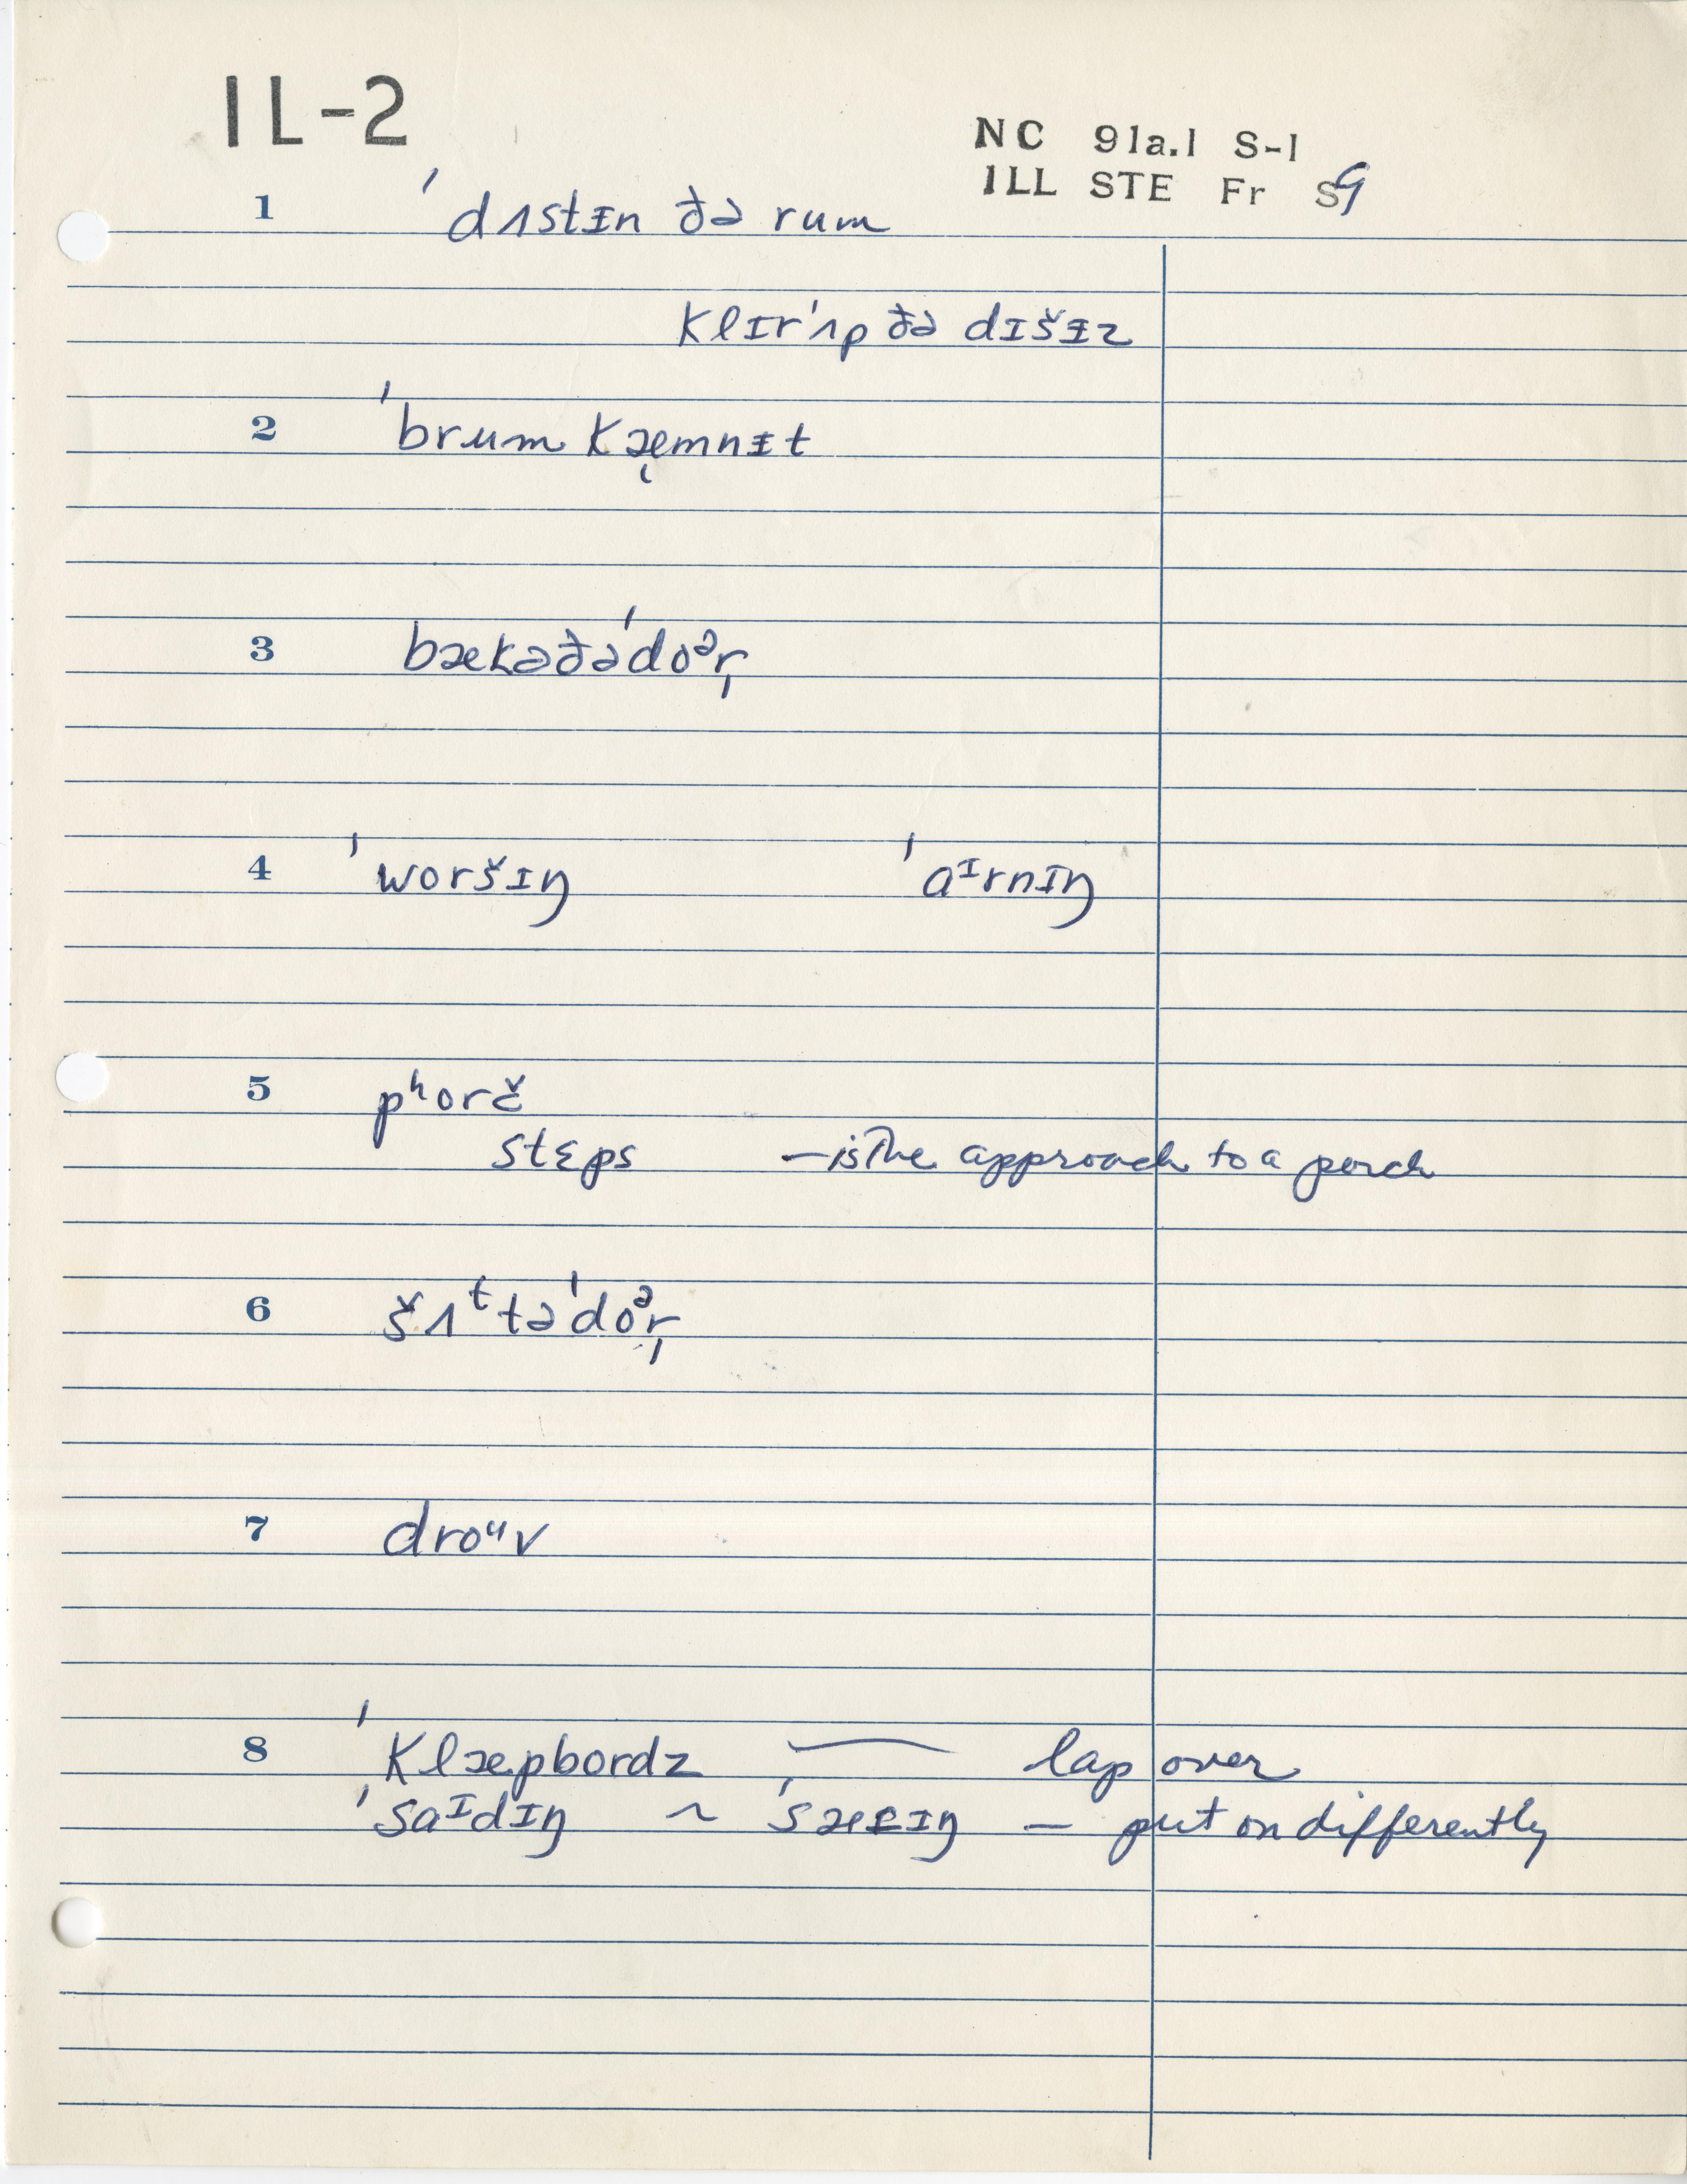 IL-2
NC 91a.1 S-1
ILL STE Fr S9
1 ˈdʌstᵻn ðə rum
klɪrˈʌp ðə dɪšᵻz
2 ˈbrum kæ̨mnᵻt
3 bækəðəˈdoᵊr̩
4 ˈworšɪŋ ˈaᶦrnɪŋ
5 pʰorč
stɛps – is the approach to a porch
6 šʌᵗtəˈdoᵊr̩
7 droᵘv
8 ˈklæpbordz — lap over
ˈsaᶦdɪŋ ~ ˈsæᵻɪŋ – put on differently